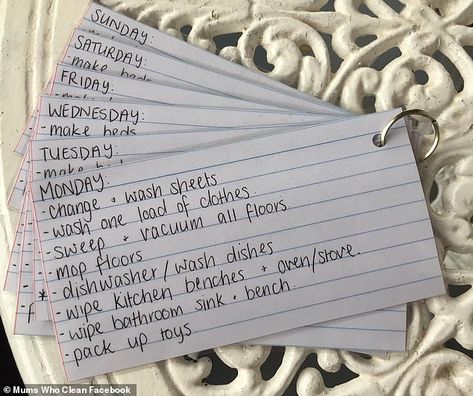 SUNDAY:
SATURDAY:
- make beds
FRIDAY:
- make
WEDNESDAY:
- make beds
TUESDAY:
- make bed
MONDAY:
- change + wash sheets
- wash one load of clothes.
- sweep + vacuum all floors.
- mop floors
- dishwasher/wash dishes
- wipe kitchen benches + oven/stove.
- wipe bathroom sink + bench.
- pack up toys.
© Mums Who Clean Facebook